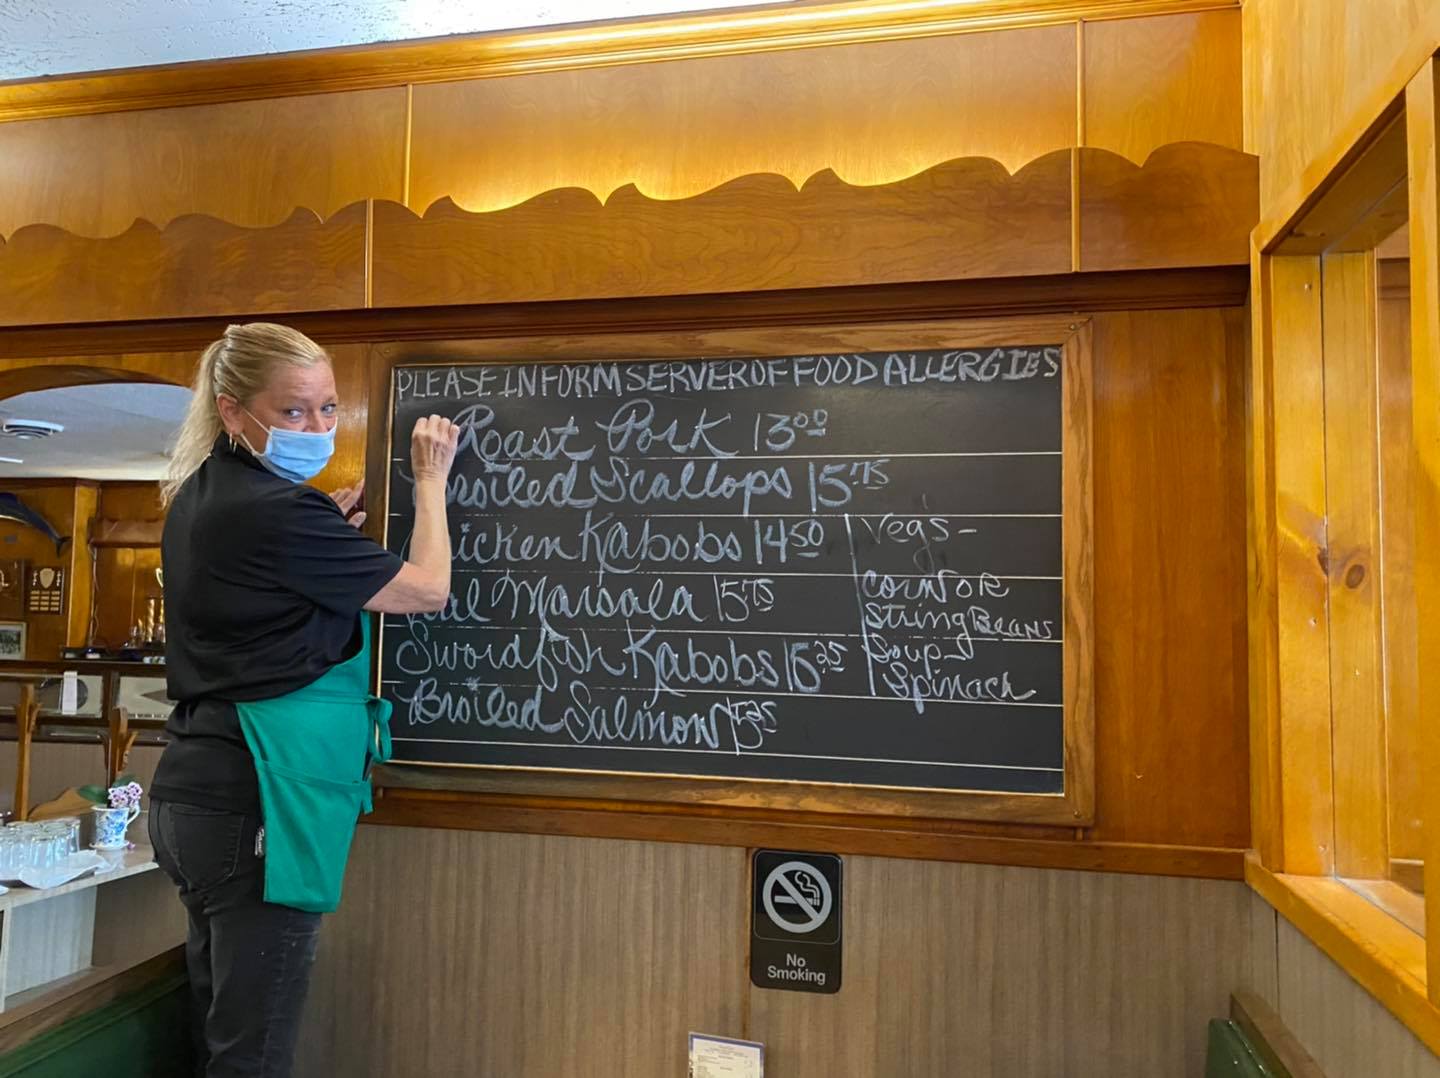 PLEASE INFORM SERVER OF FOOD ALLERGIES
Roast Pork 13.00
Broiled Scallops 15.75
Chicken Kabobs 14.50
Veal Marsala 15.75
Swordfish Kabobs 16.25
Broiled Salmon 15.25
Vegs -
CORN OR
String Beans
Soup -
Spinach
No
Smoking